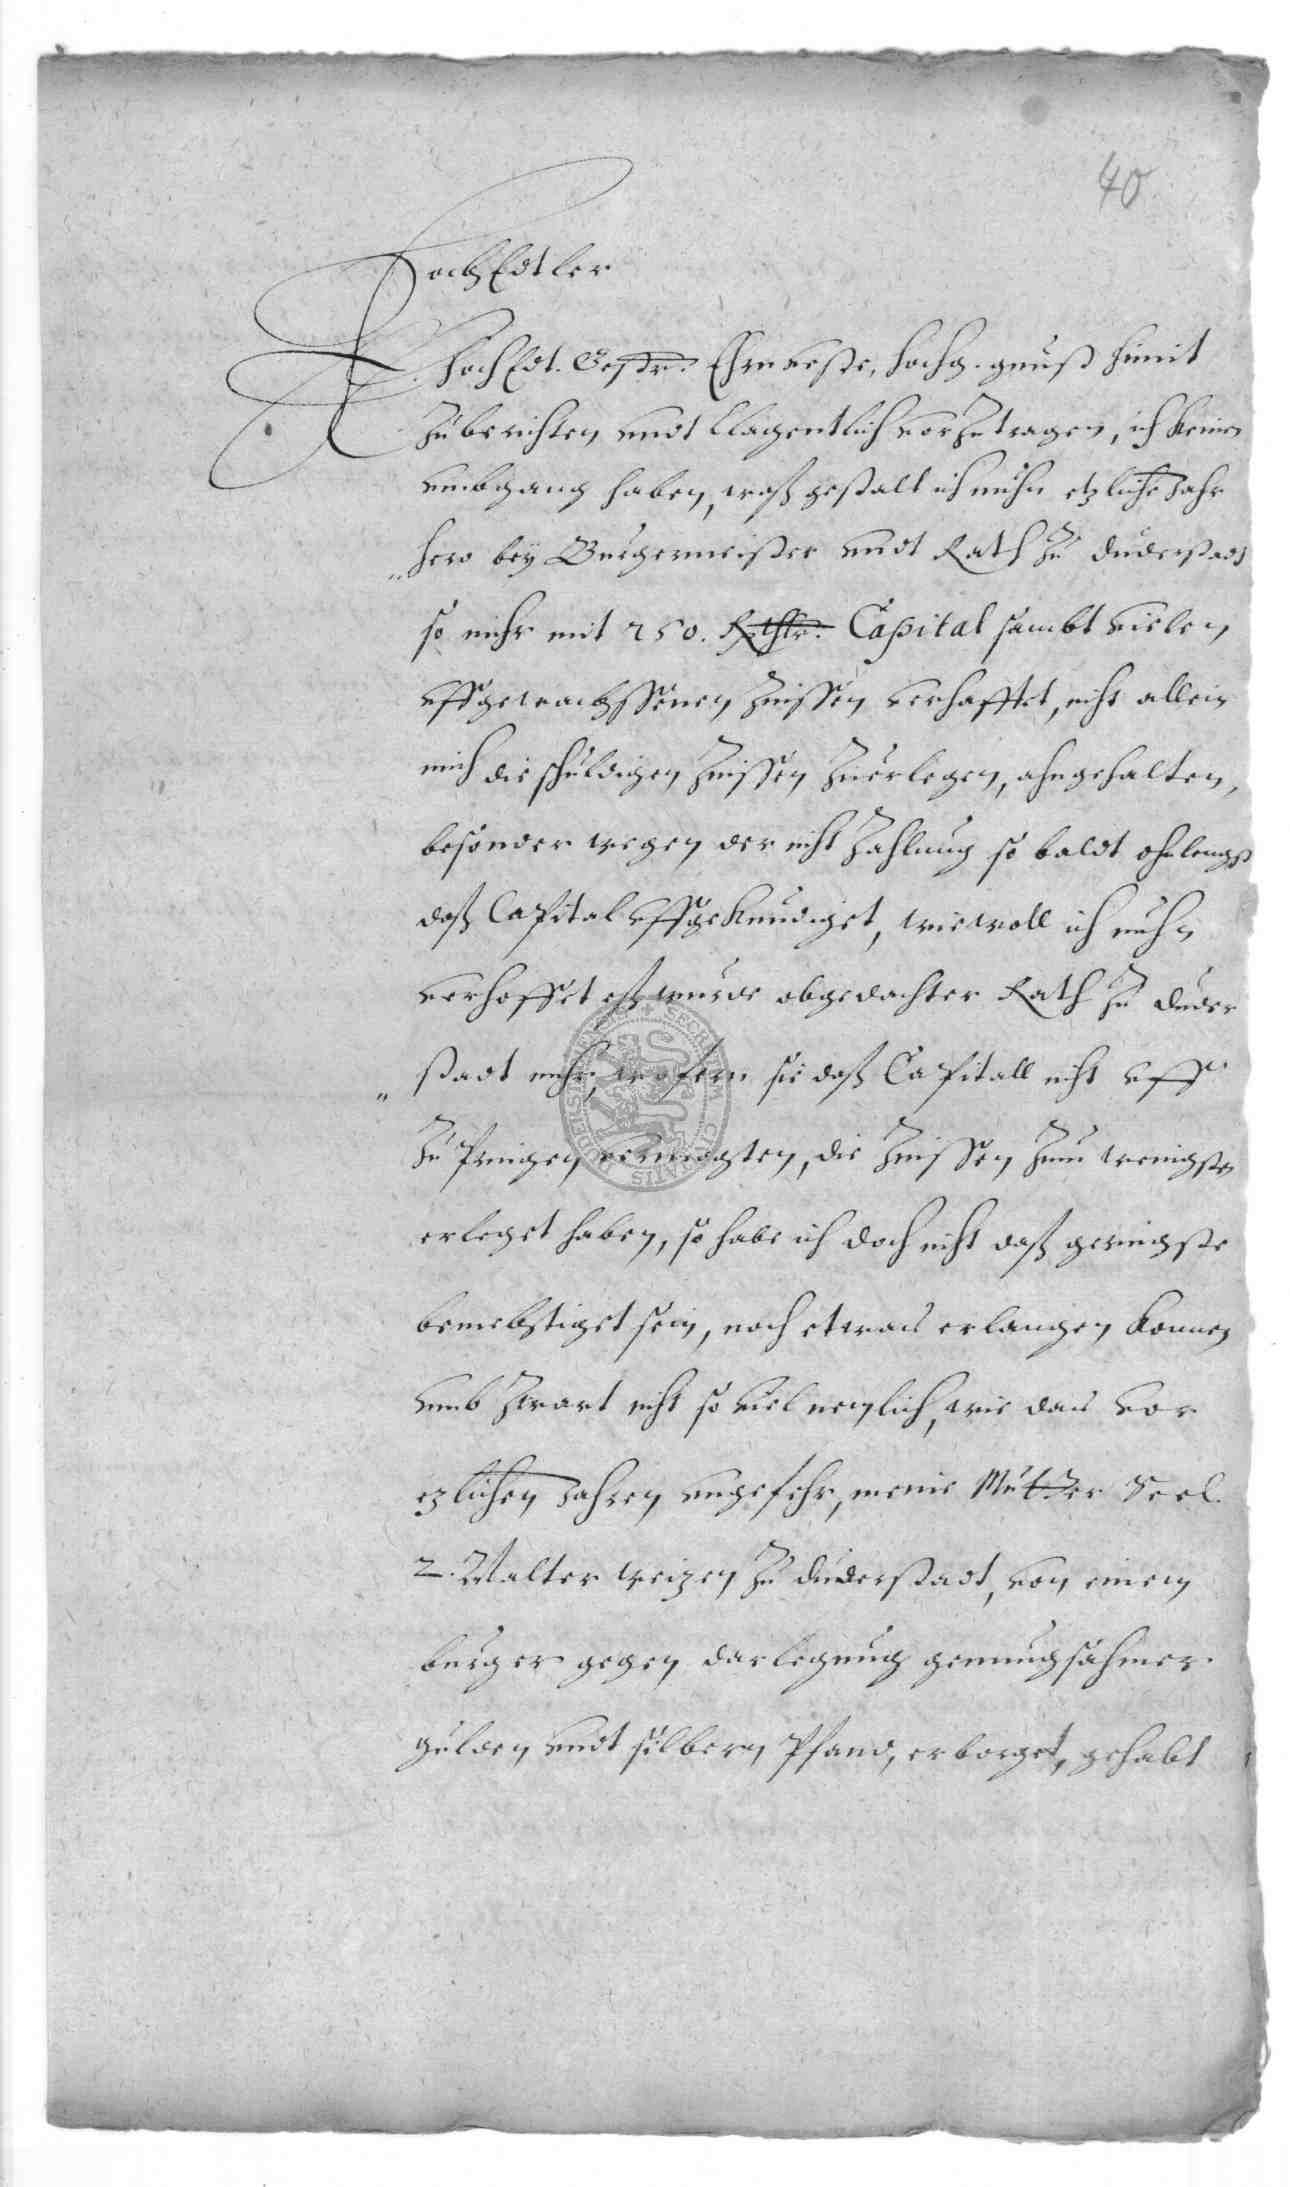 40
HochEdtler
HochEdl. Gestr. Ehrnveste, hochg. muß himit
Zu berichten undt klagentlich vorzutragen, ich keinen
umbgang haben, waß gestalt ich nuhn etzliche Jahr
hero bey Burgermeister undt Rath zu Duderstadt
so mihr mit 250. Rthlr. Capital sambt vielen
uffgewachssenen Zinssen verhafftet, nicht allein
umb die schuldigen Zinssen Zuerlegen, ahngehalten,
besonder wegen der nicht Zahlung so baldt ohnlengst
daß Capital uffgekundiget, wiewoll ich nuhn
verhoffet eß wurde obgedachter Rath zu Duder
stadt mihr, wofern sie daß Capitall nicht uff
Zu pringen vermogten, die Zinssen zum wenigsten
erleget haben, so habe ich doch nicht daß geringste
bemechtiget sein, noch etwas erlangen konnen
umb Zwart nicht so viel nemlich, wie das vor
etzlichen Jahren ungefehr, meine Mutter Seel.
2. Malter weizen zu Duderstadt, von einem
burger gegen darlegung genungsahmer
gulden undt silbern Pfand, erborget, gehabt
SECRETUM CIVITATIS DUDERSTADENSIS